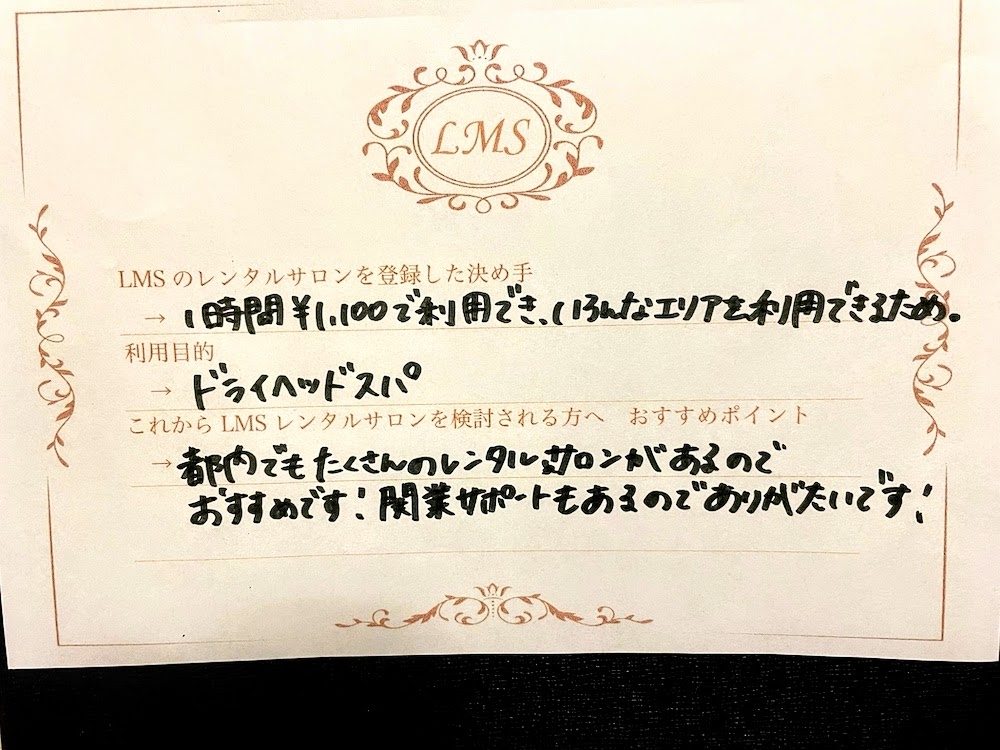 LMS
LMSのレンタルサロンを登録した決め手
→ 1時間¥1,100で利用でき、いろんなエリアを利用できるため。
利用目的
→ ドライヘッドスパ
これからLMSレンタルサロンを検討される方へ　おすすめポイント
→ 都内でもたくさんのレンタルサロンがあるので
おすすめです!開業サポートもあるのでありがたいです!